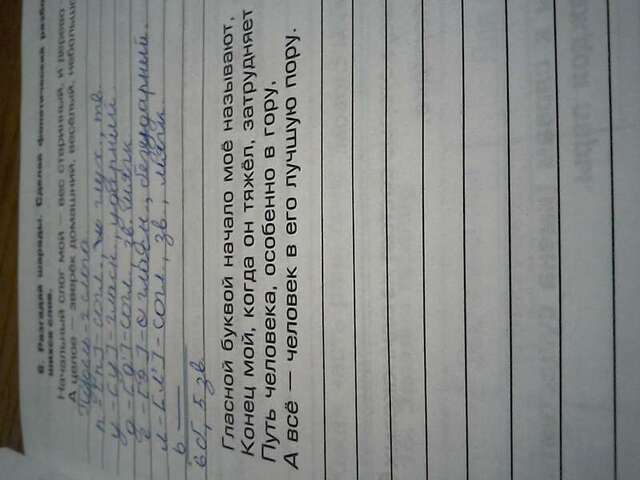 6. Разгадай шарады. Сделай фонетический разбо
шихся слов.
Начальный слог мой — вес старинный, и дерево
А целое — зверёк домашний, весёлый, небольшо
Пудель - 2 слога
п - [п] - согл., глух., тв.
у - [у] - гласн., ударный
д - [д'] - согл., зв. мягк
е - [э] - гласн., безударный.
л - [л'] - согл., зв., мягк.
ь —
6 б, 5 зв.
Гласной буквой начало моё называют,
Конец мой, когда он тяжёл, затрудняет
Путь человека, особенно в гору,
А всё — человек в его лучшую пору.